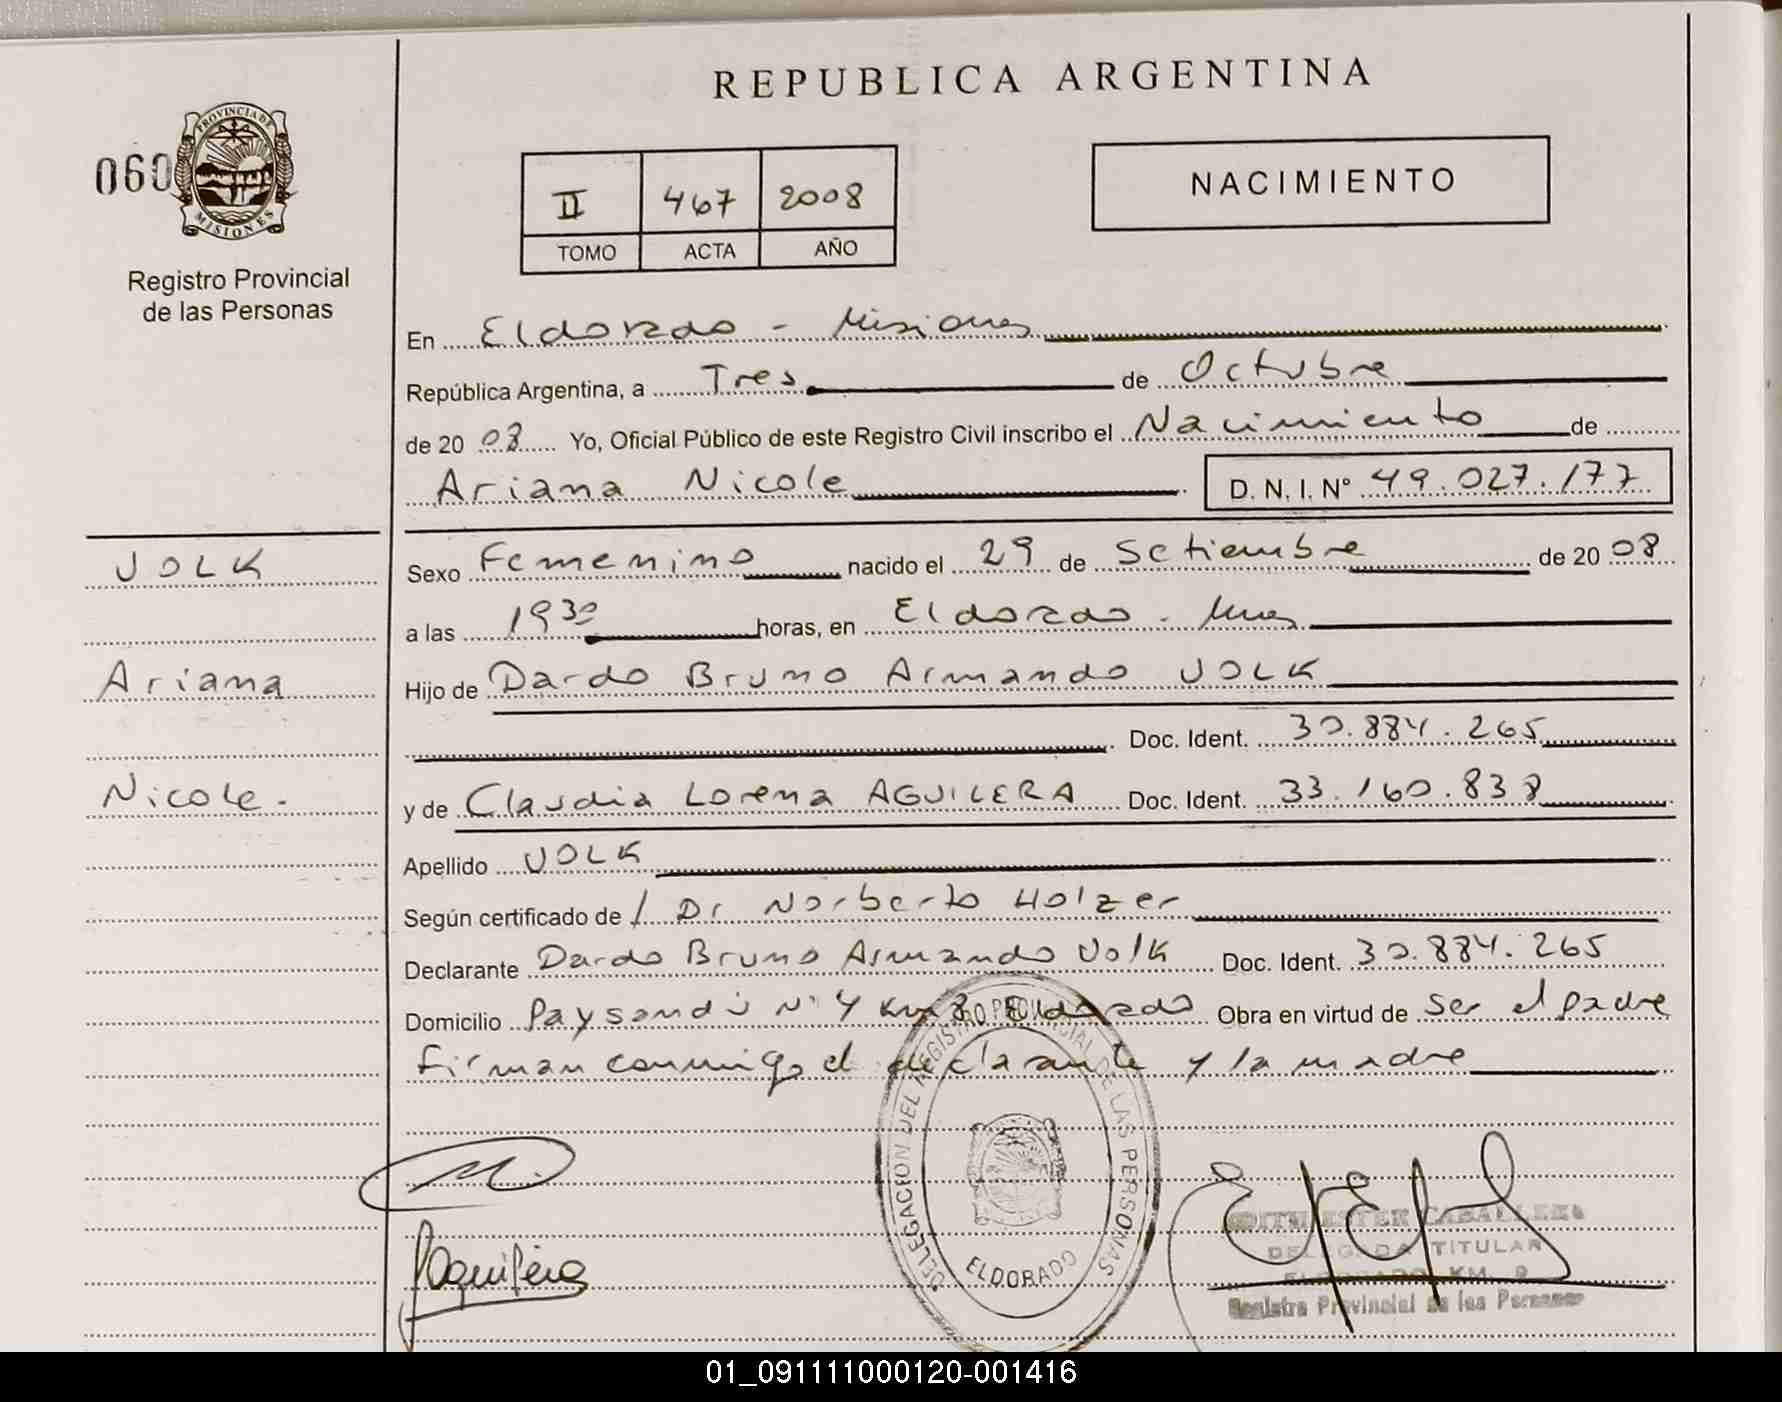 REPUBLICA ARGENTINA
060
PROVINCIA DE
MISIONES
Registro Provincial
de las Personas
II 467 2008
TOMO ACTA AÑO
NACIMIENTO
En Eldorado - Misiones
República Argentina, a Tres de Octubre
de 20 08 Yo, Oficial Público de este Registro Civil inscribo el Nacimiento de
Ariana Nicole D. N. I. N° 49.027.177
VOLK
Ariana
Nicole.
Sexo Femenino nacido el 29 de Setiembre de 20 08
a las 19 30 horas, en Eldorado - Mnes
Hijo de Dardo Bruno Armando VOLK
Doc. Ident. 30.884.265
y de Claudia Lorena AGUILERA Doc. Ident. 33.160.838
Apellido VOLK
Según certificado de / Dr Norberto Holzer
Declarante Dardo Bruno Armando Volk Doc. Ident. 30.884.265
Domicilio Paysandú N° 4 km 8 Eldorado Obra en virtud de ser el padre
firman conmigo el declarante y la madre
DELEGACION DEL REGISTRO PROVINCIAL DE LAS PERSONAS
ELDORADO
Aguilera
ESTER CABALLERO
DELEGADA TITULAR
ELDORADO KM. 9
Registro Provincial de las Personas
01_091111000120-001416